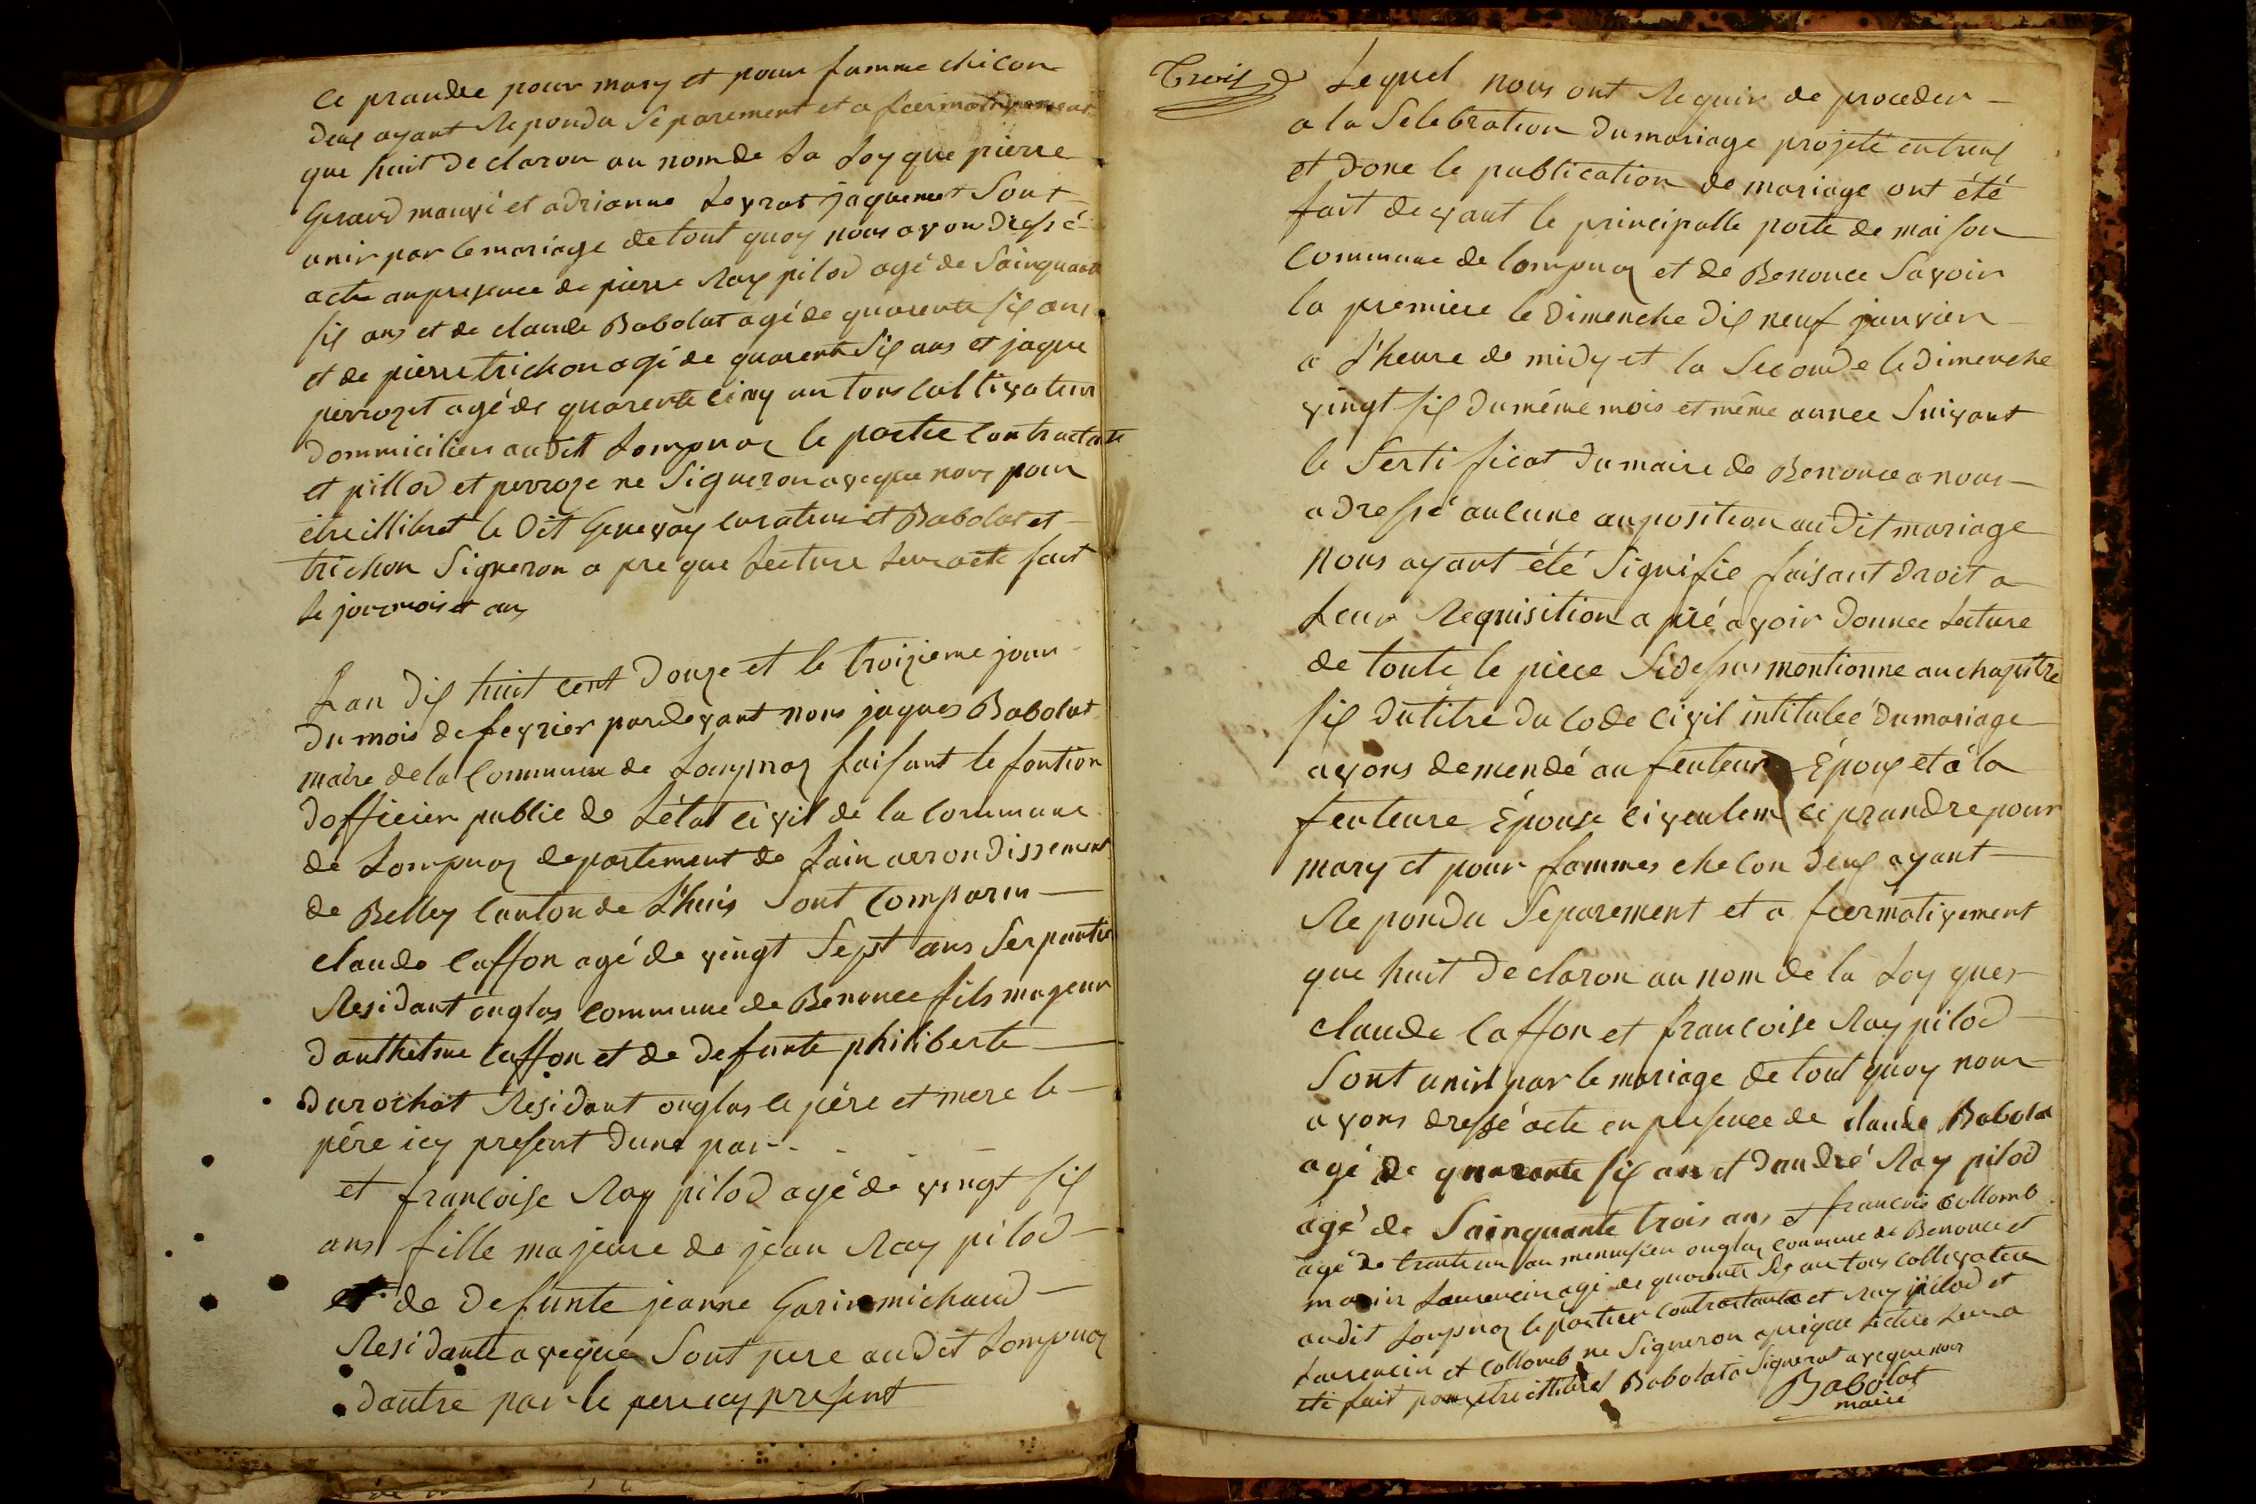 ce prandre pour mary et pour famme chicon
deux ayant Reponda Separement et a feermativement
que huit declaron au nom de La Loy que pierre
Gerard mauvé et adrianne Levrat jaquemet Sont
unir par le mariage de tout quoy nous avon dressé
acte anpresence de pierre Ray pilod agé de Sainquante
six ans et de claude Babolat agé de quarente six ans
et de pierre trichon agé de quarente Six ans et jaque
perrozet agé de quarente cinq an tous Cultivateur
dommicilier audit Lompnaz le partie Contractante
et pillod et perroze ne Signeron aveque nous pour
être illitret le dit Genevay curateur et Babolat et
trichon Signeron a pre que Lecture Leur acte fait
le jour mois et an
Lan dix huit cent douze et le troizieme jour
du mois de fevrier pardevant nous jaques Babolat
maire de la Commune de Lompnaz faisant le fontion
dofficier public de Létat civil de la Commune
de Lompnaz departement de Lain arrondissement
de Belley Canton de L'huis Sont Comparu
claude Caffon agé de vingt Sept ans Serpantie
Residant onglas Commune de Benonce fils mageur
danthelme Caffon et de defunte philiberte
durochat Residant onglas ce pére et mere le
pére icy present dune par
et francoise Ray pilod agé de vingt six
ans fille majeure de jean Ray pilod
et de defunte jeanne Garin michaud
Residante aveque Sont pere audit Lompnaz
dautre par le pere icy present
Trois
Lequel nous ont Requir de proceder
a la Selebration du mariage projeté entreux
et donc le publication de mariage ont été
fait devant le principalle porte de maison
Commune de lompnaz et de Benonce Savoir
la premiere le dimenche dix neuf janvier
a L'heure de midy et la Seconde le dimenche
vingt six du même mois et même annee Suivant
le Sertificat du maire de Benonce a nous
adressé aucune auposition audit mariage
nous ayant été Signifie faisant droit a
Leur Requisition a pré avoir donnee Lecture
de toute le piece Sidessus mentionne au chapitre
six du titre du Code Civil intitulée du mariage
avons demendé au feuteur Époux et à la
feuteure Épouse ci veulem ce prandre pour
mary et pour fammes checon deux ayant
Reponda Separement et a feermativement
que huit declaron au nom de la Loy que
claude Caffon et francoise Ray pilod
Sont unir par le mariage de tout quoy nous
avons dressé acte en presence de claude Babola
agé de quarante six an et dandré Ray pilod
agé de Sainquante trois ans et francois Collomb
agé de trante un an menusier onglas commune de Benonce et
marin Laurencin agé de quarente six an tous Coltivateur
audit Lompnaz le partier Contractante et Ray pilod et
Laurencin et Collomb ne Signeron apréque Lecture Leur a
été fait pour être illitres Babolat a Signerat aveque nous
Babolat
maire